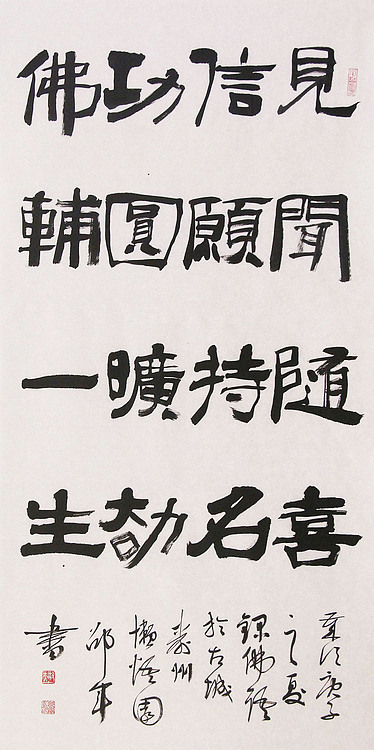 見聞隨喜
信願持名
功圓曠劫
佛輔一生
歲次庚子
之夏
錄佛語
於古城
壽州
懶悟園
邵
書